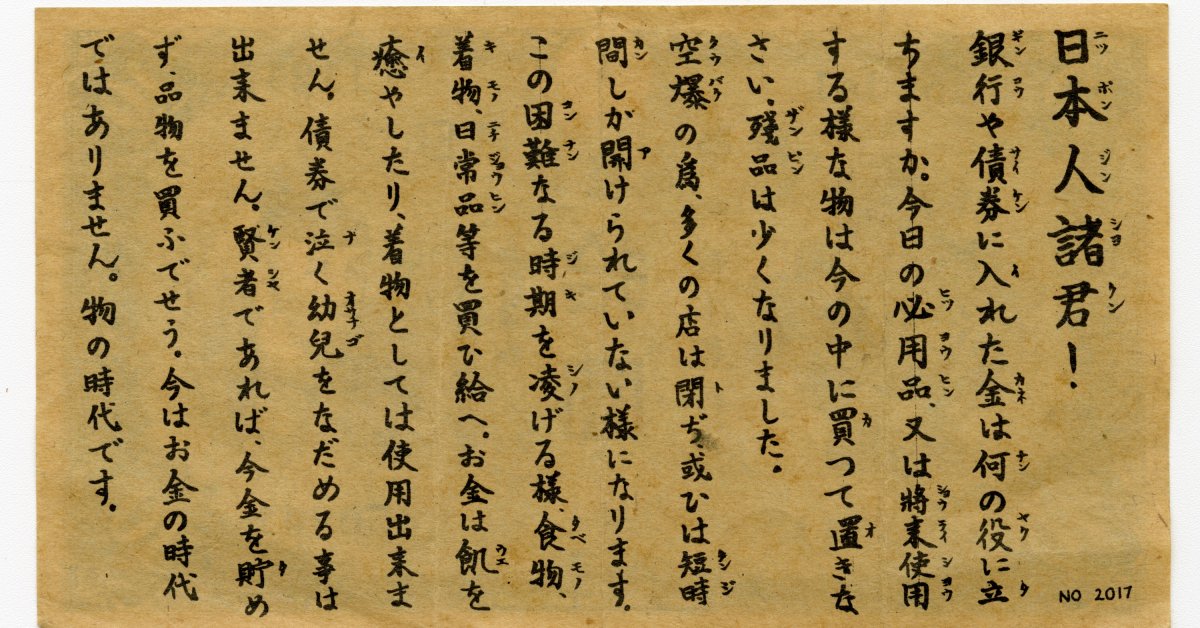 日本人諸君!
銀行や債券に入れた金は何の役に立
ちますか。今日の必用品、又は將来使用
する様な物は今の中に買つて置きな
さい、殘品は少くなりました。
空爆の爲、多くの店は閉ぢ、或ひは短時
間しか開けられていない様になります。
この困難なる時期を凌げる様、食物、
着物、日常品等を買ひ給へ。お金は飢を
癒やしたり、着物としては使用出来ま
せん。債券で泣く幼兒をなだめる事は
出来ません。賢者であれば、今金を貯め
ず、品物を買ふでせう。今はお金の時代
ではありません。物の時代です。
NO 2017